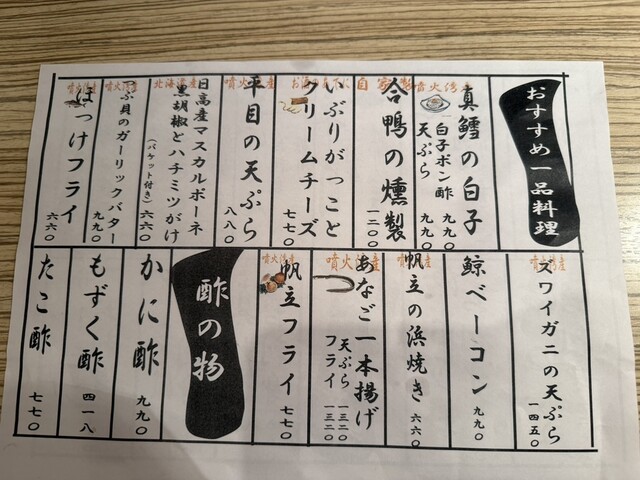 おすすめ一品料理
噴火湾産
真鱈の白子
白子ポン酢 九九〇
天ぷら 九九〇
自家製
合鴨の燻製
一二〇〇
いぶりがっこと
クリームチーズ
七七〇
噴火湾産
平目の天ぷら
八八〇
北海道産
日高産マスカルポーネ
黒胡椒とハチミツがけ
(バケット付き) 六六〇
噴火湾産
つぶ貝のガーリックバター
九九〇
噴火湾産
ほっけフライ
六六〇
噴火湾産
ズワイガニの天ぷら
一四五〇
鯨ベーコン
九九〇
噴火湾産
帆立の浜焼き
六六〇
噴火湾産
あなご一本揚げ
天ぷら 一三二〇
フライ 一三二〇
噴火湾産
帆立フライ
七七〇
酢の物
かに酢
九九〇
もずく酢
四一八
たこ酢
七七〇